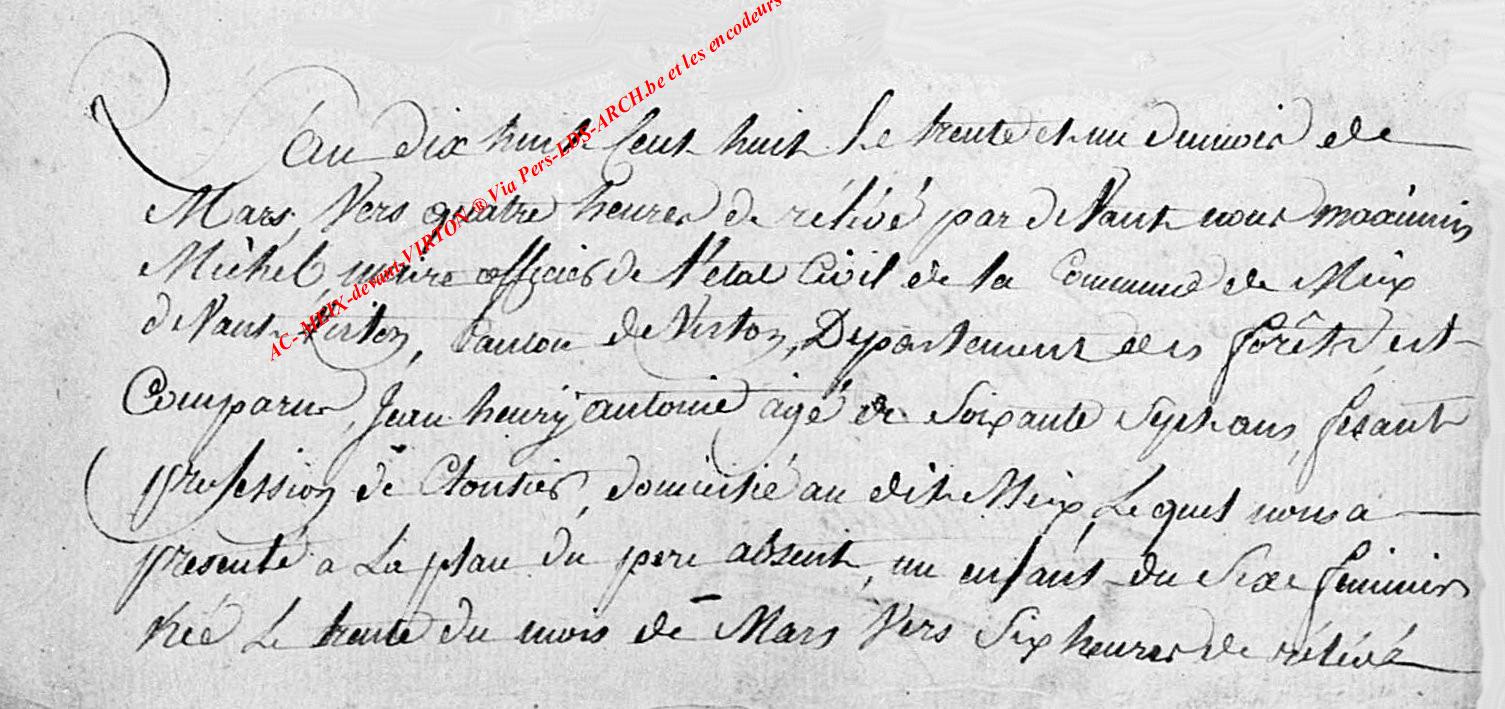 AC-MEIX-devant-VIRTON ® Via Pers-LDS-ARCH.be et les encodeurs
L'an dix huit Cent huit le trente et un du mois de
Mars, Vers quatre heures de rélévé par deVant nous maximin
Michel, maire officier de l'etat Civil de la Commune de Meix
deVant-Virton, Canton de Virton, Departement des forêts est
Comparu, Jean henry antoine agé de Soixante Sept ans, fesant
profession de Cloutier, domicilié au dit Meix, Lequel nous a
presenté a La place du pere absent, un enfant du Sexe feminin
née Le trente du mois de Mars Vers Six heures de rélévé